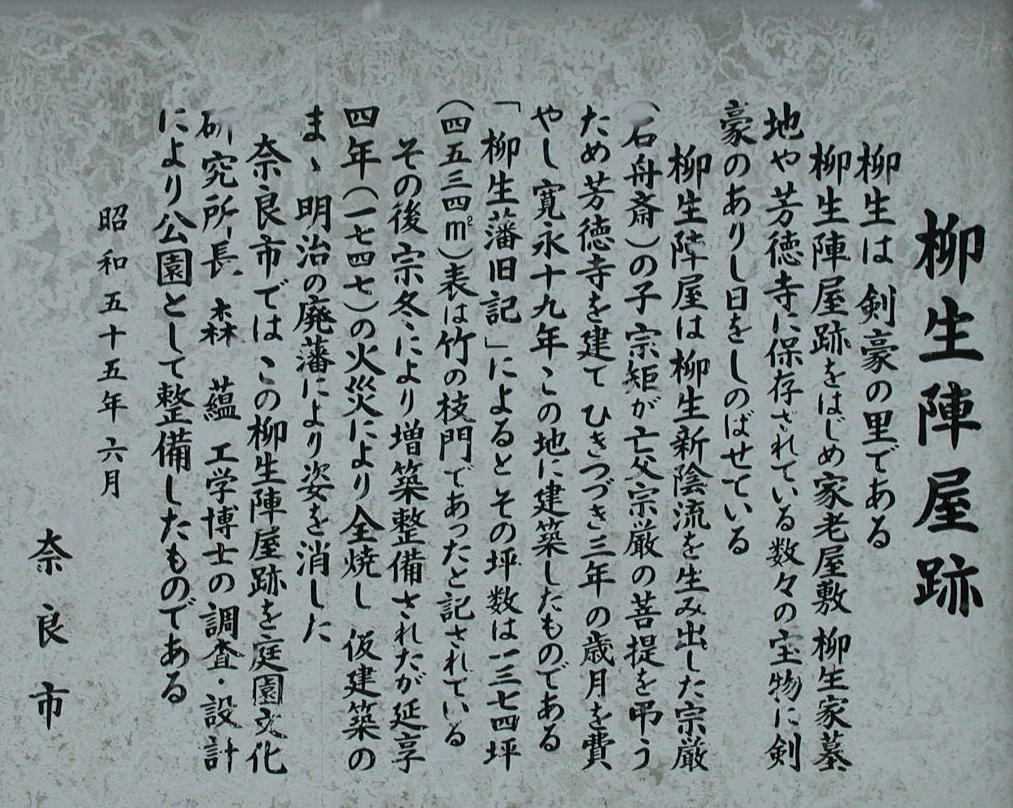 柳生陣屋跡
柳生は 剣豪の里である
柳生陣屋跡をはじめ家老屋敷 柳生家墓
地や芳徳寺に保存されている数々の宝物に剣
豪のありし日をしのばせている
柳生陣屋は柳生新陰流を生み出した宗厳
(石舟斎)の子 宗矩が亡父宗厳の菩提を弔う
ため芳徳寺を建て ひきつづき三年の歳月を費
やし寛永十九年この地に建築したものである
「柳生藩旧記」によるとその坪数は一三七四坪
(四五三四㎡)表は竹の枝門であったと記されている
その後宗冬により増築整備されたが延享
四年(一七四七)の火災により全焼し 仮建築の
まゝ明治の廃藩により姿を消した
奈良市ではこの柳生陣屋跡を庭園文化
研究所長 森 蘊 工学博士の調査・設計
により公園として整備したものである
昭和五十五年六月
奈良市